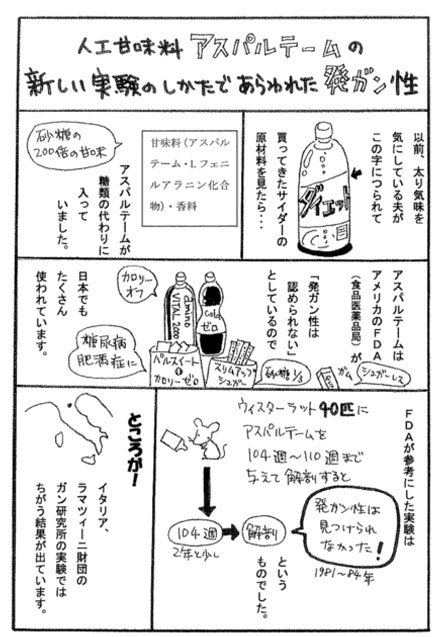 人工甘味料 アスパルテームの
新しい実験のしかたであらわれた発ガン性
以前、太り気味を
気にしている夫が
この字につられて
ダイエット
買ってきたサイダーの
原材料を見たら・・・
甘味料（アスパル
テーム・L フェニ
ルアラニン化合
物）・香料
砂糖の
200倍の甘味
アスパルテームが
糖類の代わりに
入って
いました。
アスパルテームは
アメリカのFDA
（食品医薬品局）が
「発ガン性は
認められない」
としているので
カロリー
オフ
amino
VITAL 2000
Cola
ゼロ
パルスイート
カロリーゼロ
スリムアップ
シュガー
砂糖1/3
ガム
シュガーレス
糖尿病
肥満症に
日本でも
たくさん
使われています。
FDAが参考にした実験は
ウィスターラット40匹に
アスパルテームを
104週～110週まで
与えて解剖すると
104週
2年と少し
解剖
発ガン性は
見つけられ
なかった！
1981～84年
という
ものでした。
ところが！
イタリア、
ラマツィーニ財団の
ガン研究所の実験では
ちがう結果が出ています。